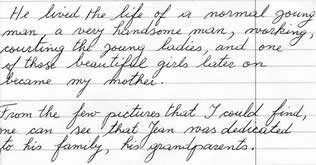 He lived the life of a normal young
man, a very handsome man, working,
courting the young ladies, and one
of those beautiful girls later on
became my mother.
From the few pictures that I could find,
we can see that Jean was dedicated
to his family, his grandparents.